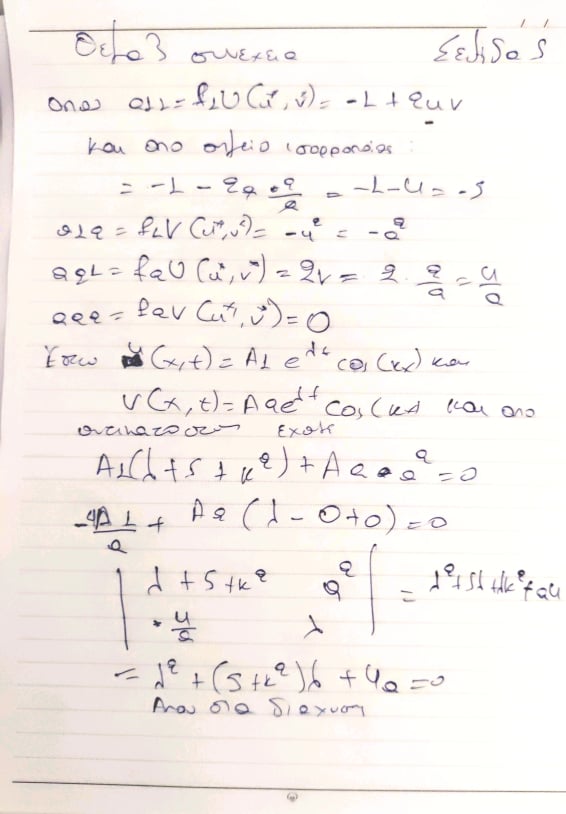 Θεμα 3 συνεχεια Σελιδα 5
οπου a11 = f1U (u*, v*) = -1 + 2uv
και στο σημειο ισορροπιας :
= -1 - 2a · 2/a = -1-4 = -5
a12 = f1V (u*, v*) = -u² = -a²
a21 = f2U (u*, v*) = 2v = 2 · 2/a = 4/a
a22 = f2V (u*, v*) = 0
Εστω U(x,t) = A1 e^λt cos(kx) και
V(x,t) = A2e^λt cos(kx) και στο
εχουμε
A1(λ+5+k²) + A2 · a² = 0
-4A1/a + A2 (λ - 0+0) = 0
| λ+5+k² a² | = λ²+5λ+λk²+a4
| · 4/a λ |
= λ² + (5+k²)λ + 4a = 0
Απου στα διαχυση